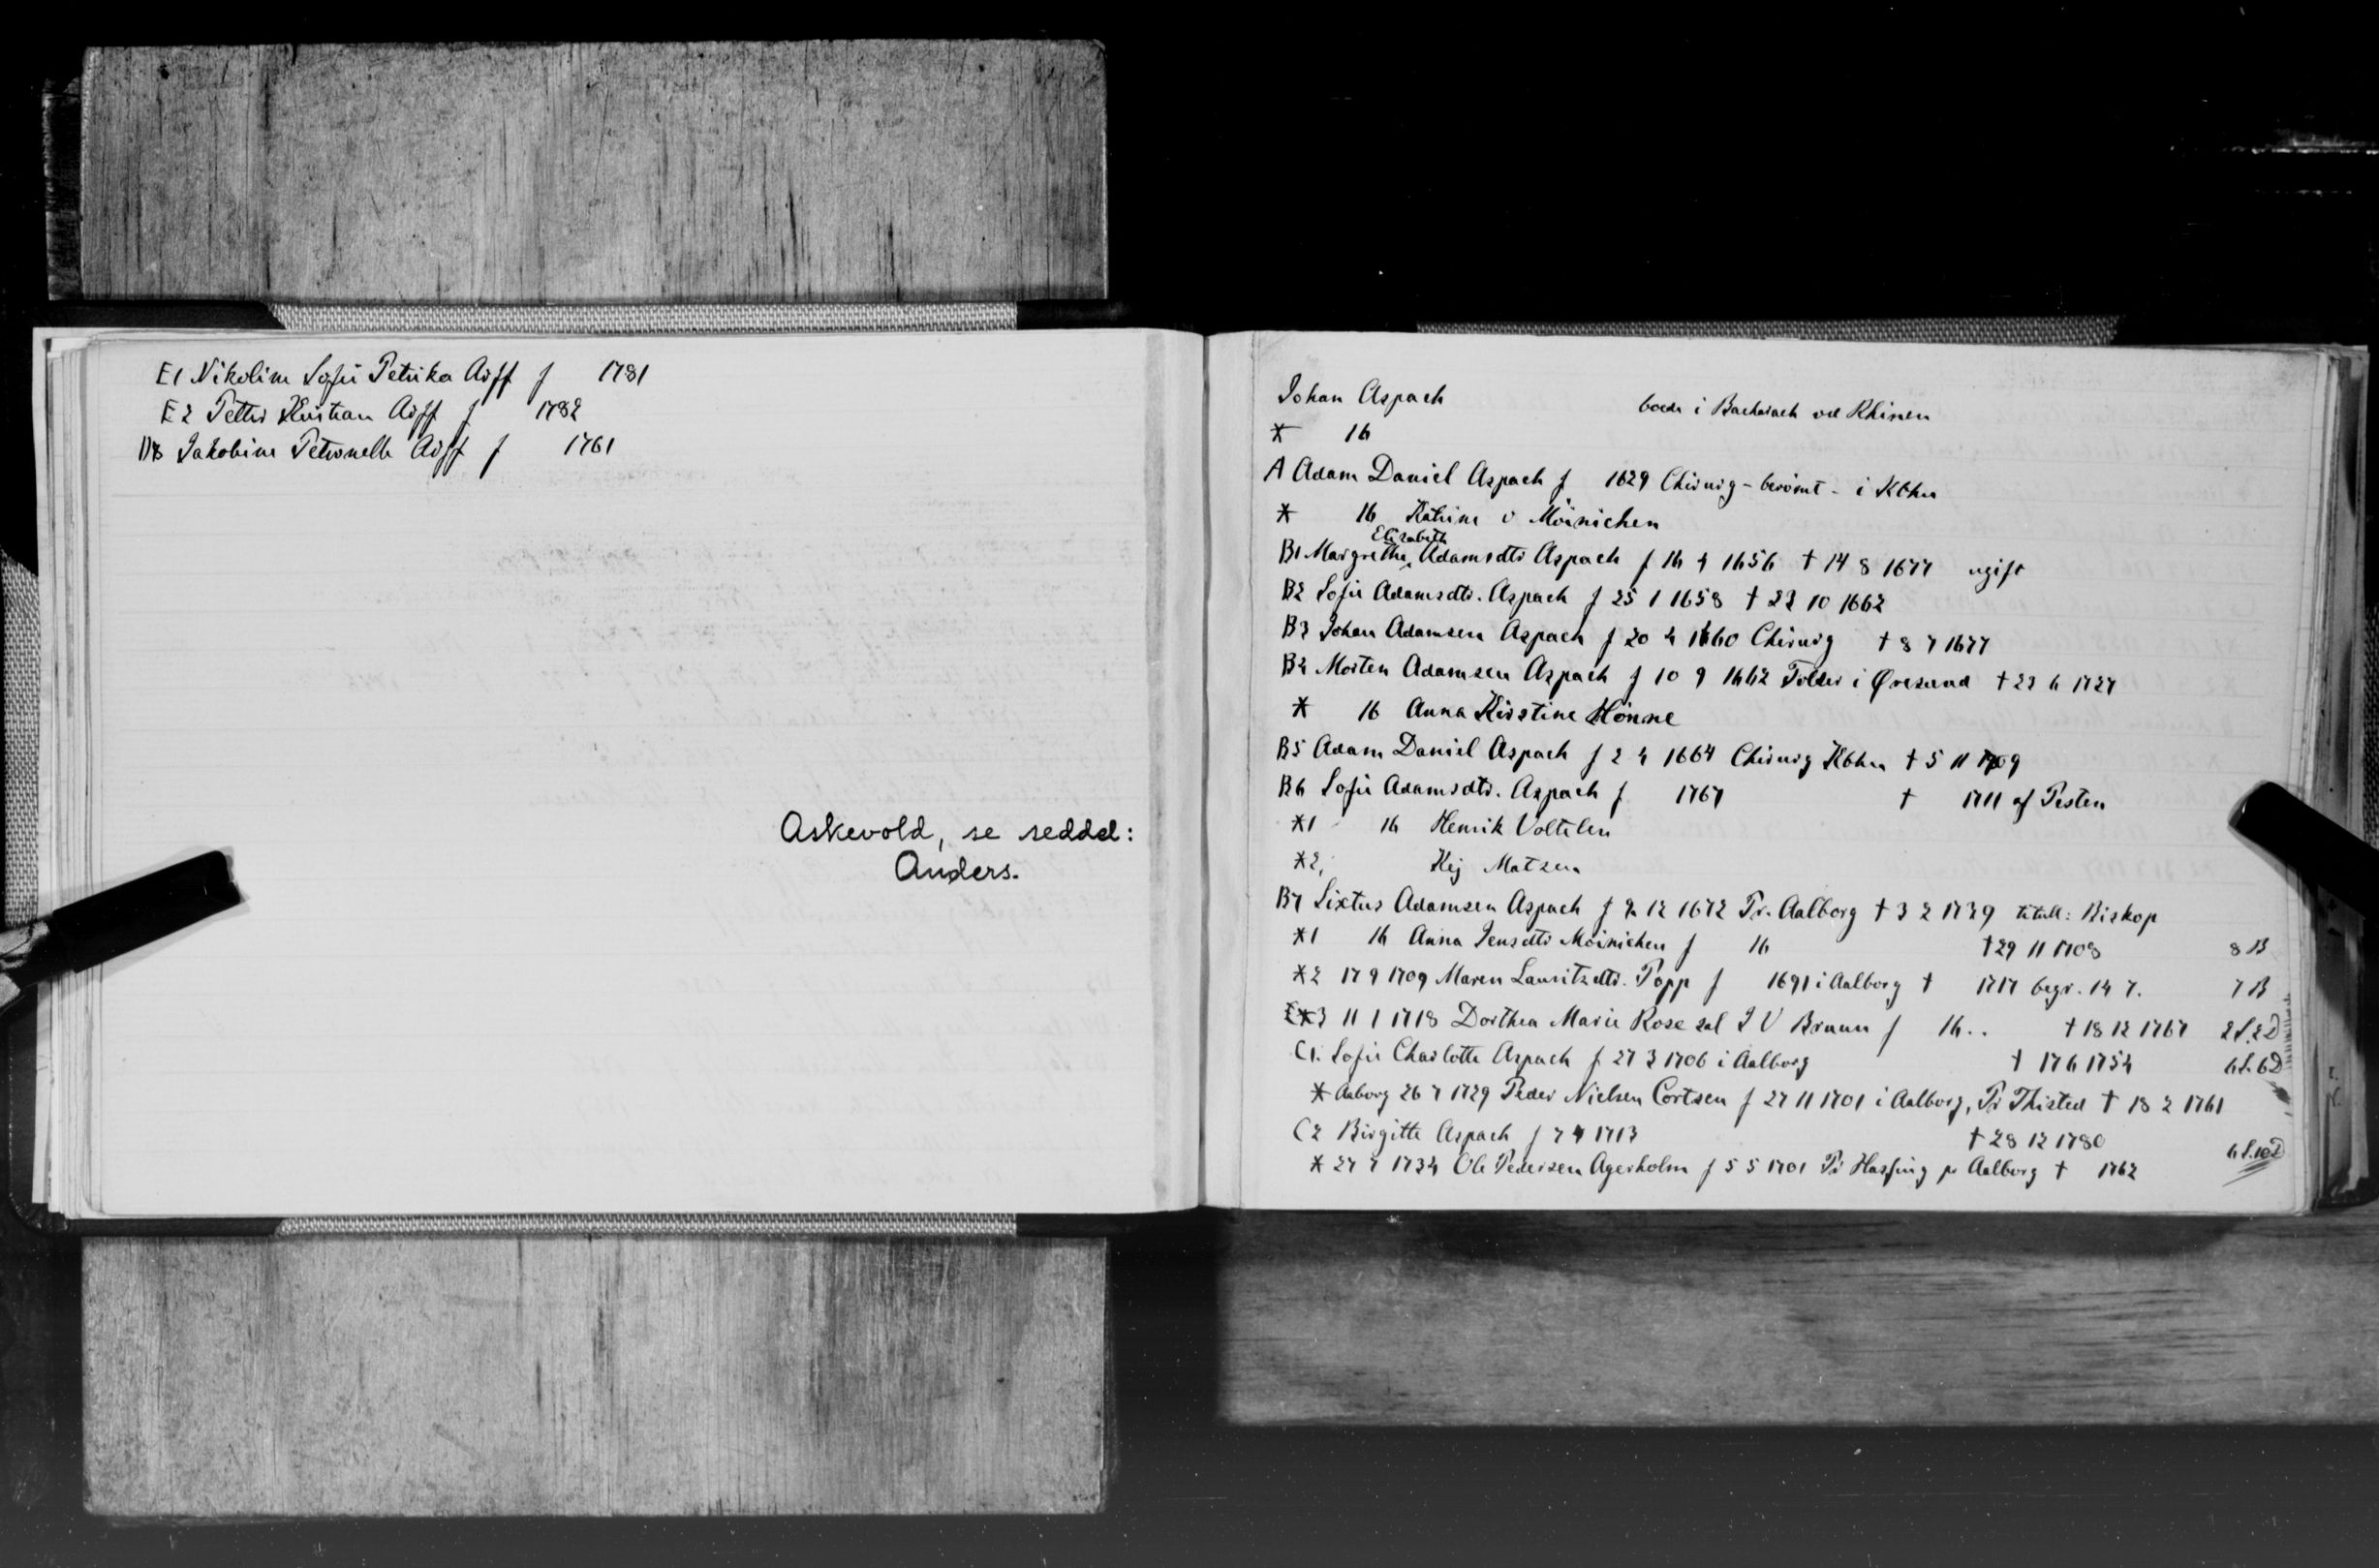 E1 Nikoline Sofie Petrika Aiff f 1781
E2 Petter Kristian Aiff f 1782
D8 Jakobine Petronelle Aiff f 1761
Askevold, se seddel:
Anders.
Johan Aspach boede i Bacharach ved Rhinen
* 16
A Adam Daniel Aspach f 1629 Chirurg - berömt - i Kbhn
* 16 Katrine v Möinichen
Elisabeth
B1 Margrethe Adamsdtr Aspach f 16 4 1656 † 14 8 1677 ugift
B2 Sofie Adamsdtr. Aspach f 25 1 1658 † 22 10 1662
B3 Johan Adamsen Aspach f 20 4 1660 Chirurg † 8 7 1677
B4 Morten Adamsen Aspach f 10 9 1662 Tolder i Øresund † 23 6 1727
* 16 Anna Kirstine Hönne
B5 Adam Daniel Aspach f 2 4 1664 Chirurg Kbhn † 5 11 1709
B6 Sofie Adamsdtr. Aspach f 1767 † 1711 af Pesten
*1 16 Henrik Voltelen
*2, Kej Matzen
B7 Sixtus Adamsen Aspach f 9 12 1672 Pr. Aalborg † 3 2 1739 titull: Biskop
*1 16 Anna Jensdtr Möinichen f 16 † 29 11 1708 8 B
*2 17 9 1709 Maren Lauritzdtr. Popp f 1691 i Aalborg † 1717 begr. 14 7. 7 B
*3 11 1 1718 Dorthea Marie Rose sal J V Bruun f 16.. † 18 12 1767 2S.2D
C1. Sofie Charlotte Aspach f 27 3 1706 i Aalborg † 17 6 1754 6S.6D
* Aaborg 26 7 1729 Peder Nielsen Cortsen f 27 11 1701 i Aalborg, Pr Thisted † 18 2 1761
C2 Birgitte Aspach f 7 4 1713 † 28 12 1780 6S.10D
* 27 7 1734 Ole Pedersen Agerholm f 5 5 1701 Pr Hasfing pr Aalborg † 1762